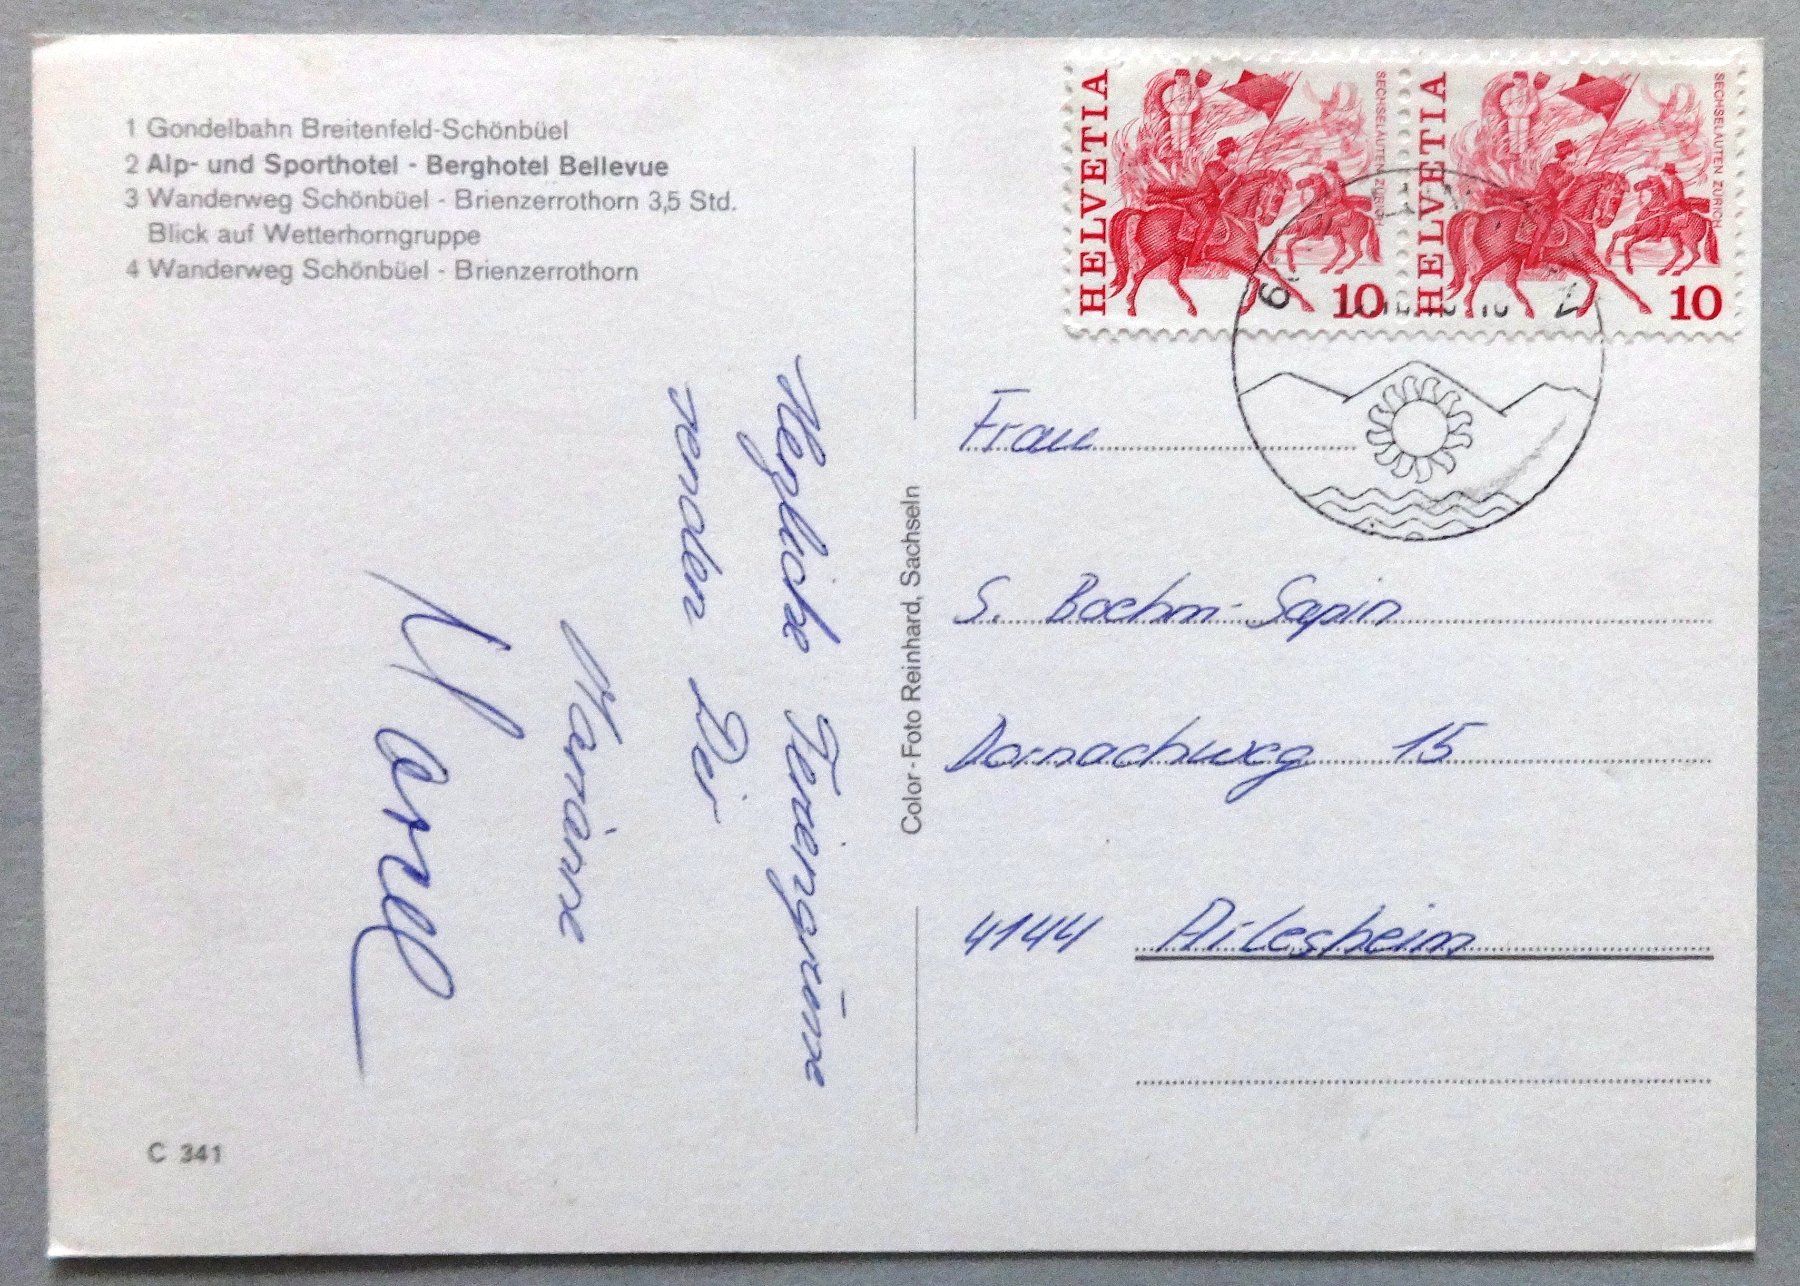 1 Gondelbahn Breitenfeld-Schönbüel
2 Alp- und Sporthotel - Berghotel Bellevue
3 Wanderweg Schönbüel - Brienzerrothorn 3,5 Std.
Blick auf Wetterhorngruppe
4 Wanderweg Schönbüel - Brienzerrothorn
Herzliche Feriengrüsse
senden Dir
Marianne
C 341
Color-Foto Reinhard, Sachseln
HELVETIA
SECHSELÄUTEN ZÜRICH
10
HELVETIA
SECHSELÄUTEN ZÜRICH
10
Frau
S. Boehm-Sapin
Dornachweg 15
4144 Arlesheim